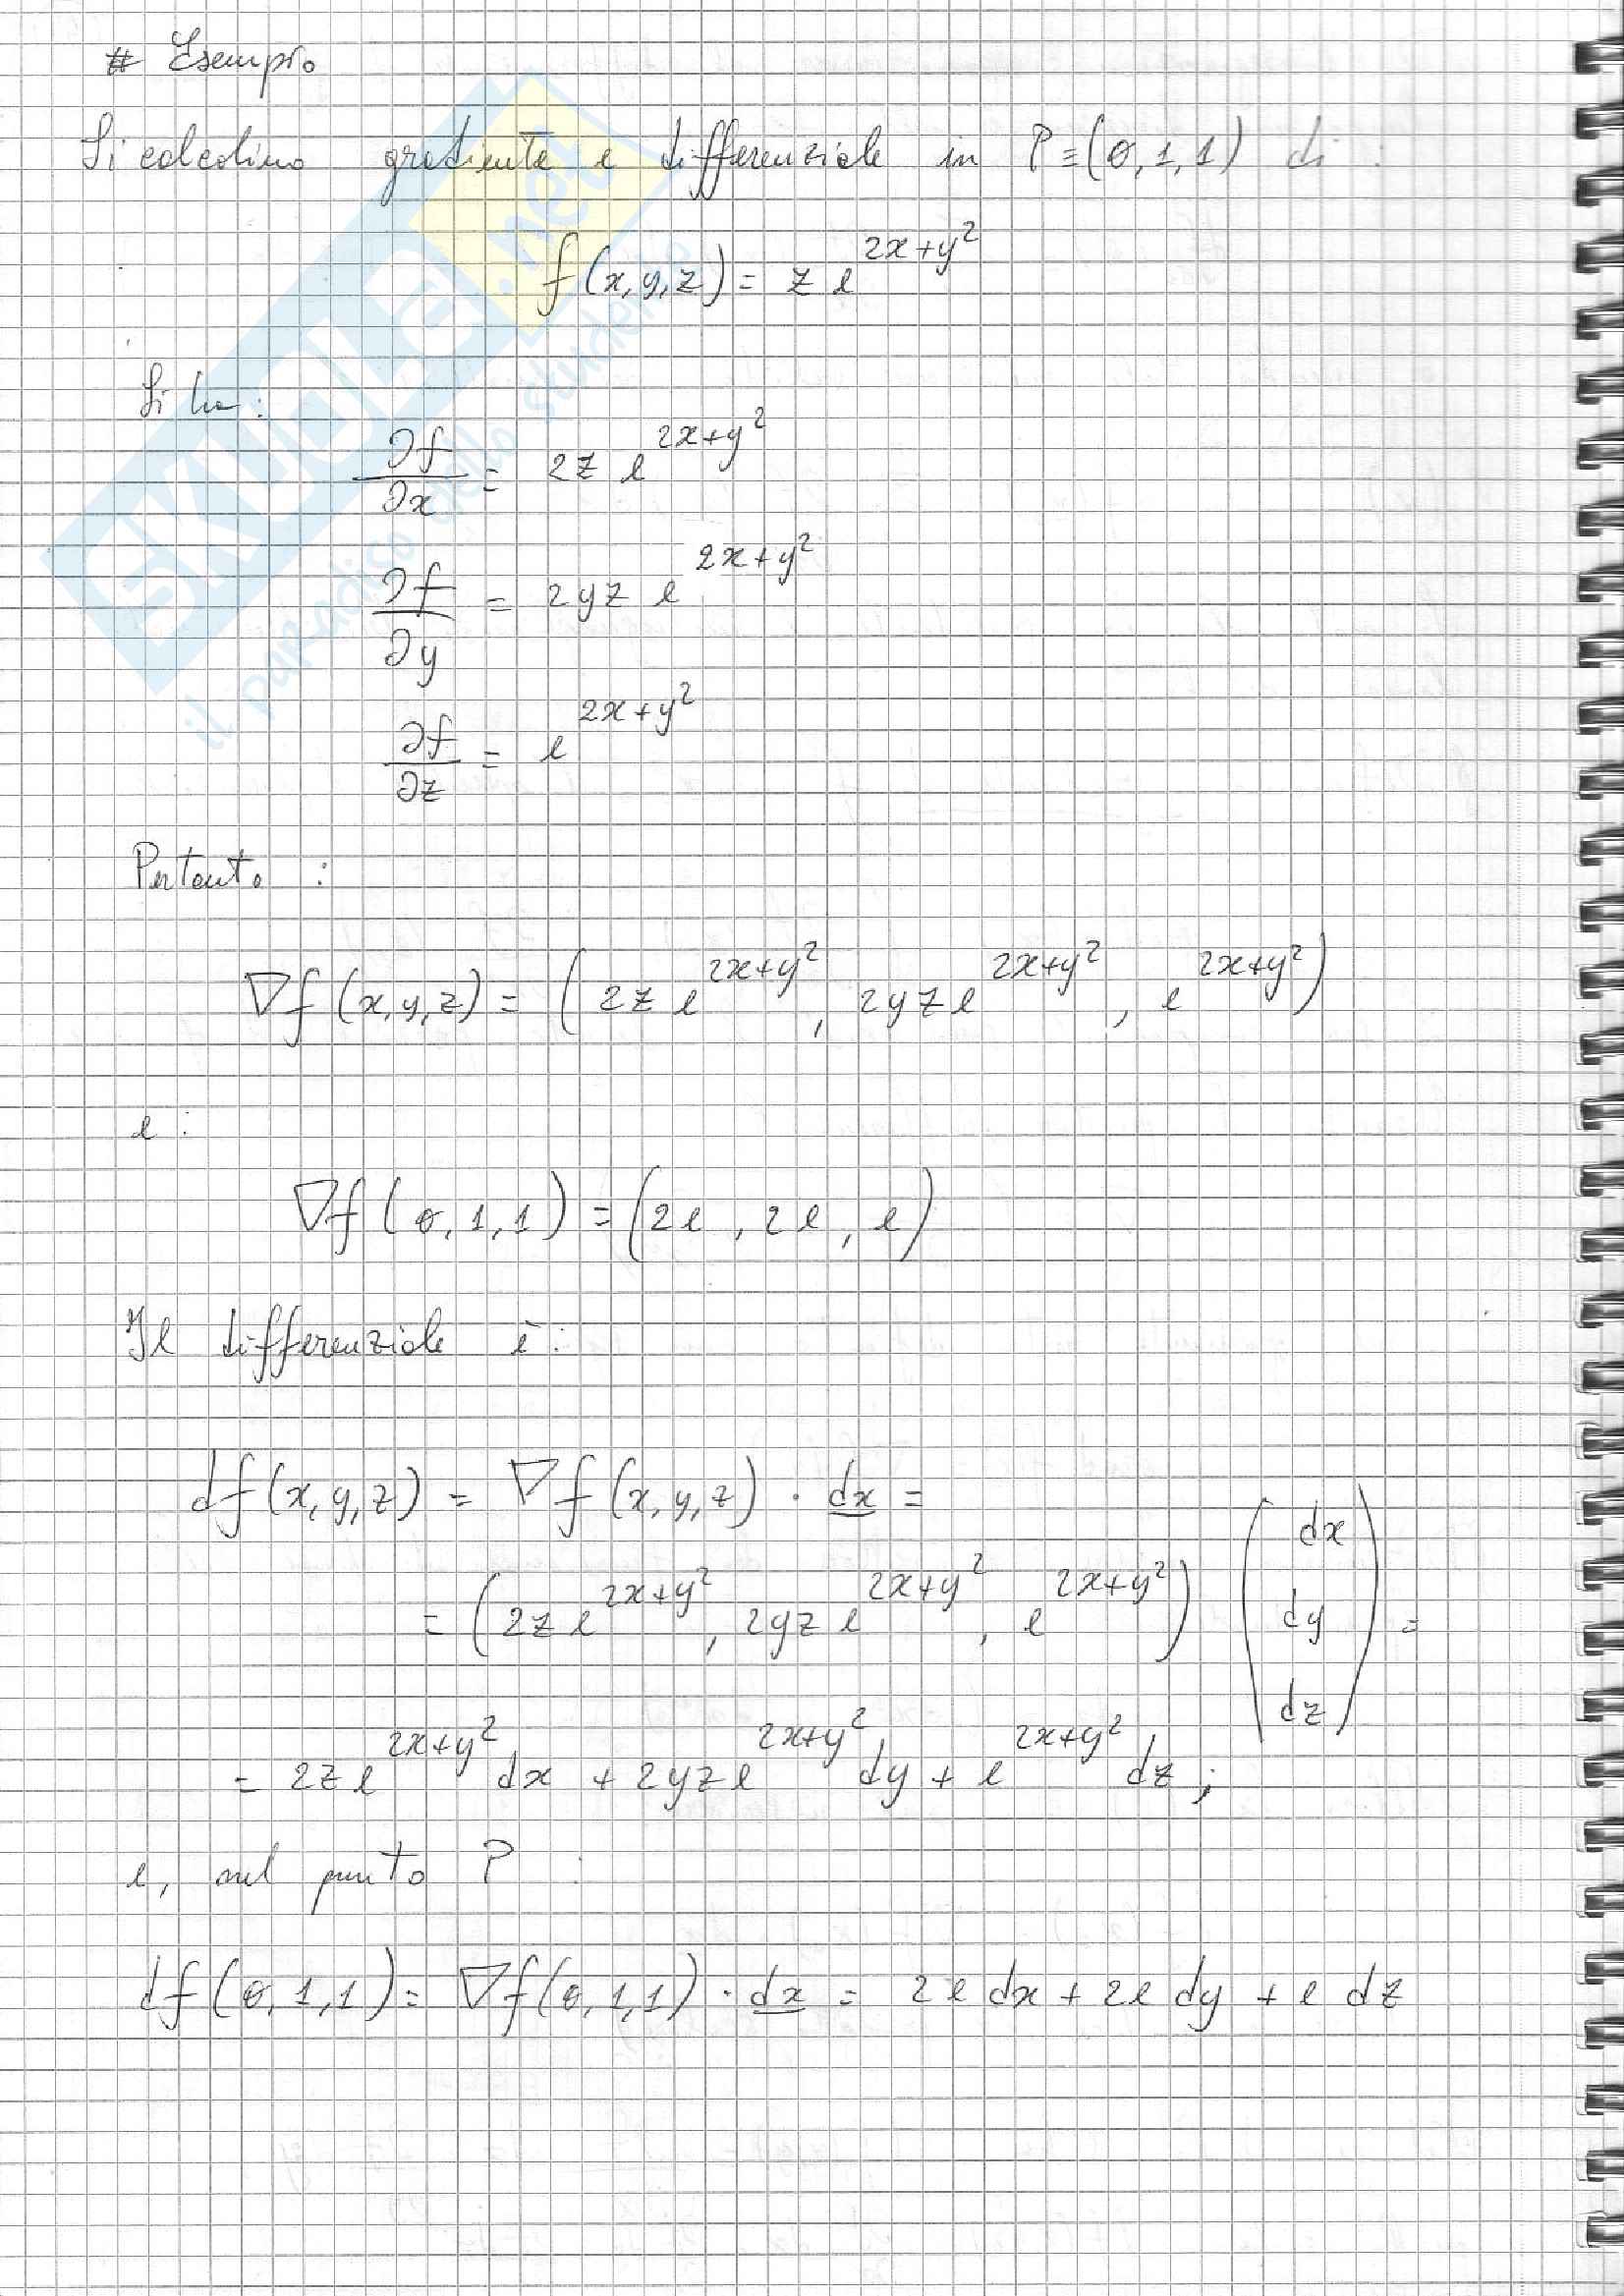 # Esempio
Si calcolino gradiente e differenziale in P≡(0,1,1) di:
f(x,y,z) = z e^{2x+y²}
Si ha:
∂f/∂x = 2z e^{2x+y²}
∂f/∂y = 2yz e^{2x+y²}
∂f/∂z = e^{2x+y²}
Pertanto:
∇f(x,y,z) = (2z e^{2x+y²}, 2yz e^{2x+y²}, e^{2x+y²})
e:
∇f(0,1,1) = (2e, 2e, e)
Il differenziale è:
df(x,y,z) = ∇f(x,y,z) · dx =
= (2z e^{2x+y²}, 2yz e^{2x+y²}, e^{2x+y²}) (dx dy dz) =
= 2z e^{2x+y²} dx + 2yz e^{2x+y²} dy + e^{2x+y²} dz;
e, nel punto P:
df(0,1,1) = ∇f(0,1,1) · dx = 2e dx + 2e dy + e dz
SKUOLA.net
il paradiso dello studente